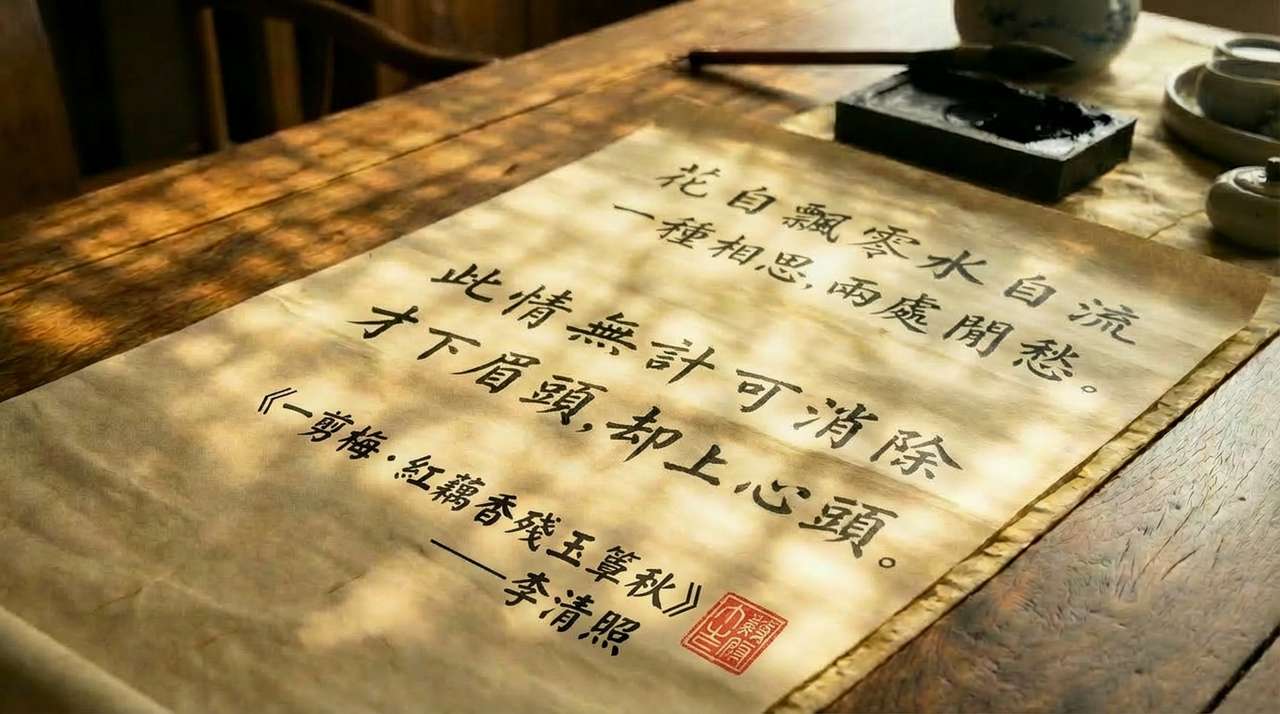 花自飄零水自流
一種相思,兩處閒愁。
此情無計可消除
才下眉頭,却上心頭。
《一剪梅·紅藕香殘玉簟秋》
——李清照